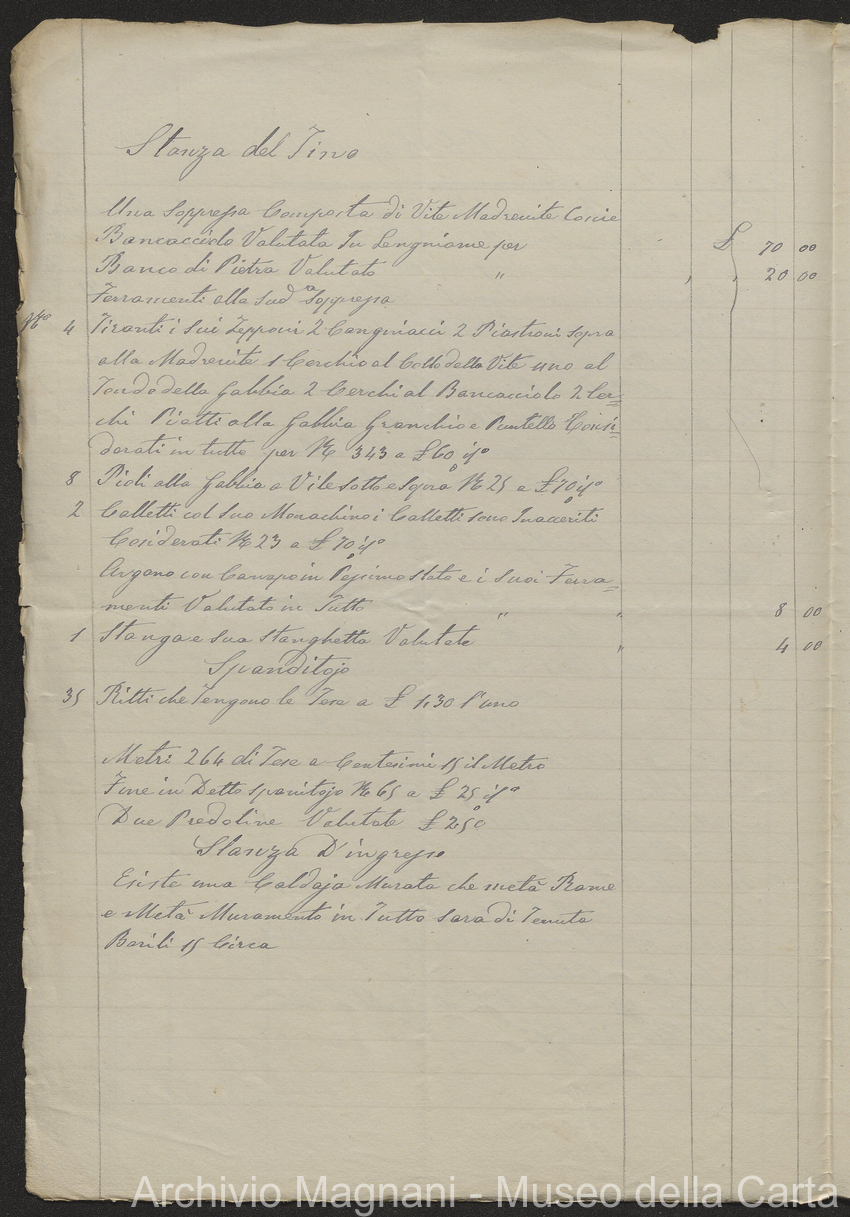 Stanza del Tino
Una Soppressa Composta di Vite Madrevite Coscie
Bancacciolo Valutata In Lengniame per £ 70 00
Banco di Pietra Valutato " " " 20 00
Ferramenti alla Sudª Soppressa
N° 4 Tiranti i Sui Zepponi 2 Cangniacci 2 Piastroni Sopra
alla Madrevite 1 Cerchio al Collo della Vite uno al
Tondo della Gabbia 2 Cerchi al Bancacciolo 2 Cer=
chi Piatti alla Gabbia Granchio e Puntello Consi=
derati in tutto per K 343 a £ 60 il °
8 Pioli alla Gabbia a Vite sotto e Sopra K 25 a £ 70 il °
2 Calletti col Suo Monachino i Calletti sono Inacceriti
Cosiderati K 23 a £ 70 il °
Argano con Canapo in Pessimo Stato e i Suoi Ferra=
menti Valutato in Tutto " " 8 00
1 Stanga e Sua Stanghetta Valutate " 4 00
Spanditojo
35 Ritti che Tengono le Tese a £ 1,30 l'uno
Metri 264 di Tese a Centesimi 15 il Metro
Fune in Detto Spanitojo K 65 a £ 25 il °
Due Predoline Valutate £ 2,50
Stanza D'ingresso
Esiste una Caldaja Murata che metà Rame
e Metà Muramento in Tutto Sara di Tenuta
Barili 15 Circa
Archivio Magnani - Museo della Carta